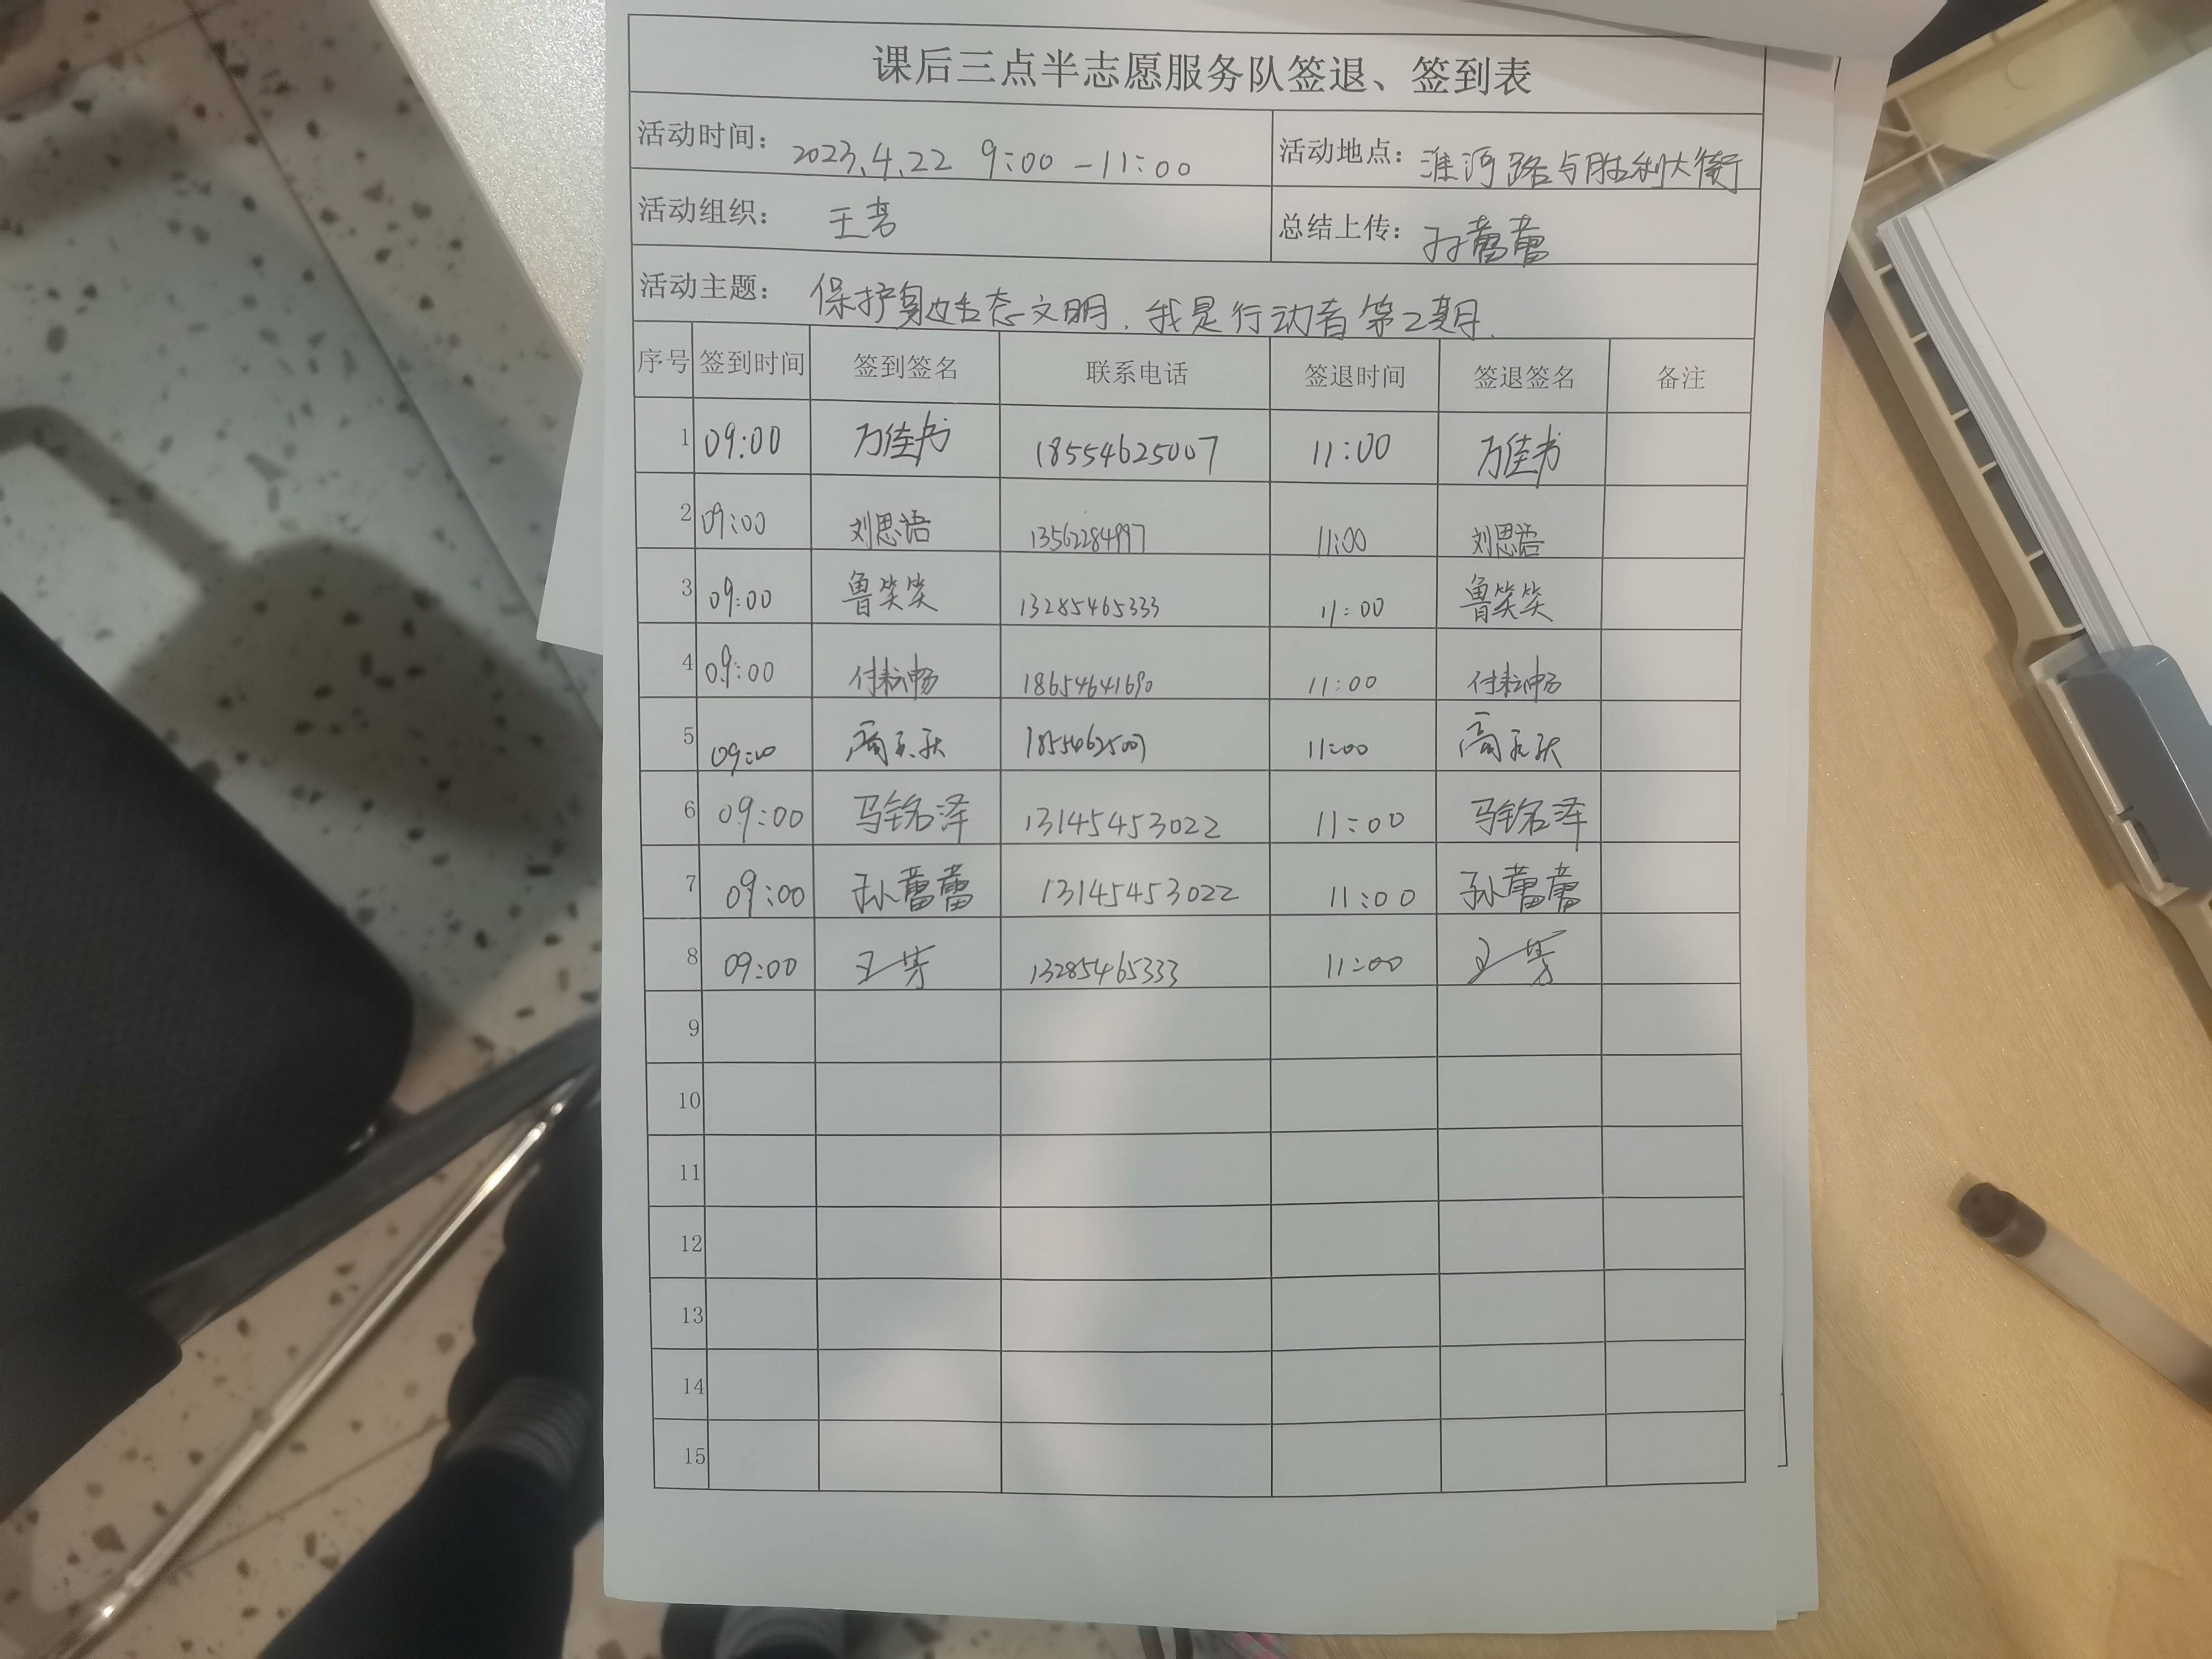 课后三点半志愿服务队签退、签到表
活动时间: 2023.4.22 9:00-11:00 活动地点: 淮河路与胜利大街
活动组织: 王芳 总结上传: 孙蕾蕾
活动主题: 保护身边生态文明，我是行动者第2期.
序号 签到时间 签到签名 联系电话 签退时间 签退签名 备注
1 09:00 万佳书 18554625007 11:00 万佳书
2 09:00 刘思语 13562284997 11:00 刘思语
3 09:00 鲁笑笑 13285465333 11:00 鲁笑笑
4 09:00 付耘畅 18654641690 11:00 付耘畅
5 09:00 11:00
6 09:00 马铭泽 13145453022 11:00 马铭泽
7 09:00 孙蕾蕾 13145453022 11:00 孙蕾蕾
8 09:00 王芳 13285465333 11:00 王芳
9
10
11
12
13
14
15